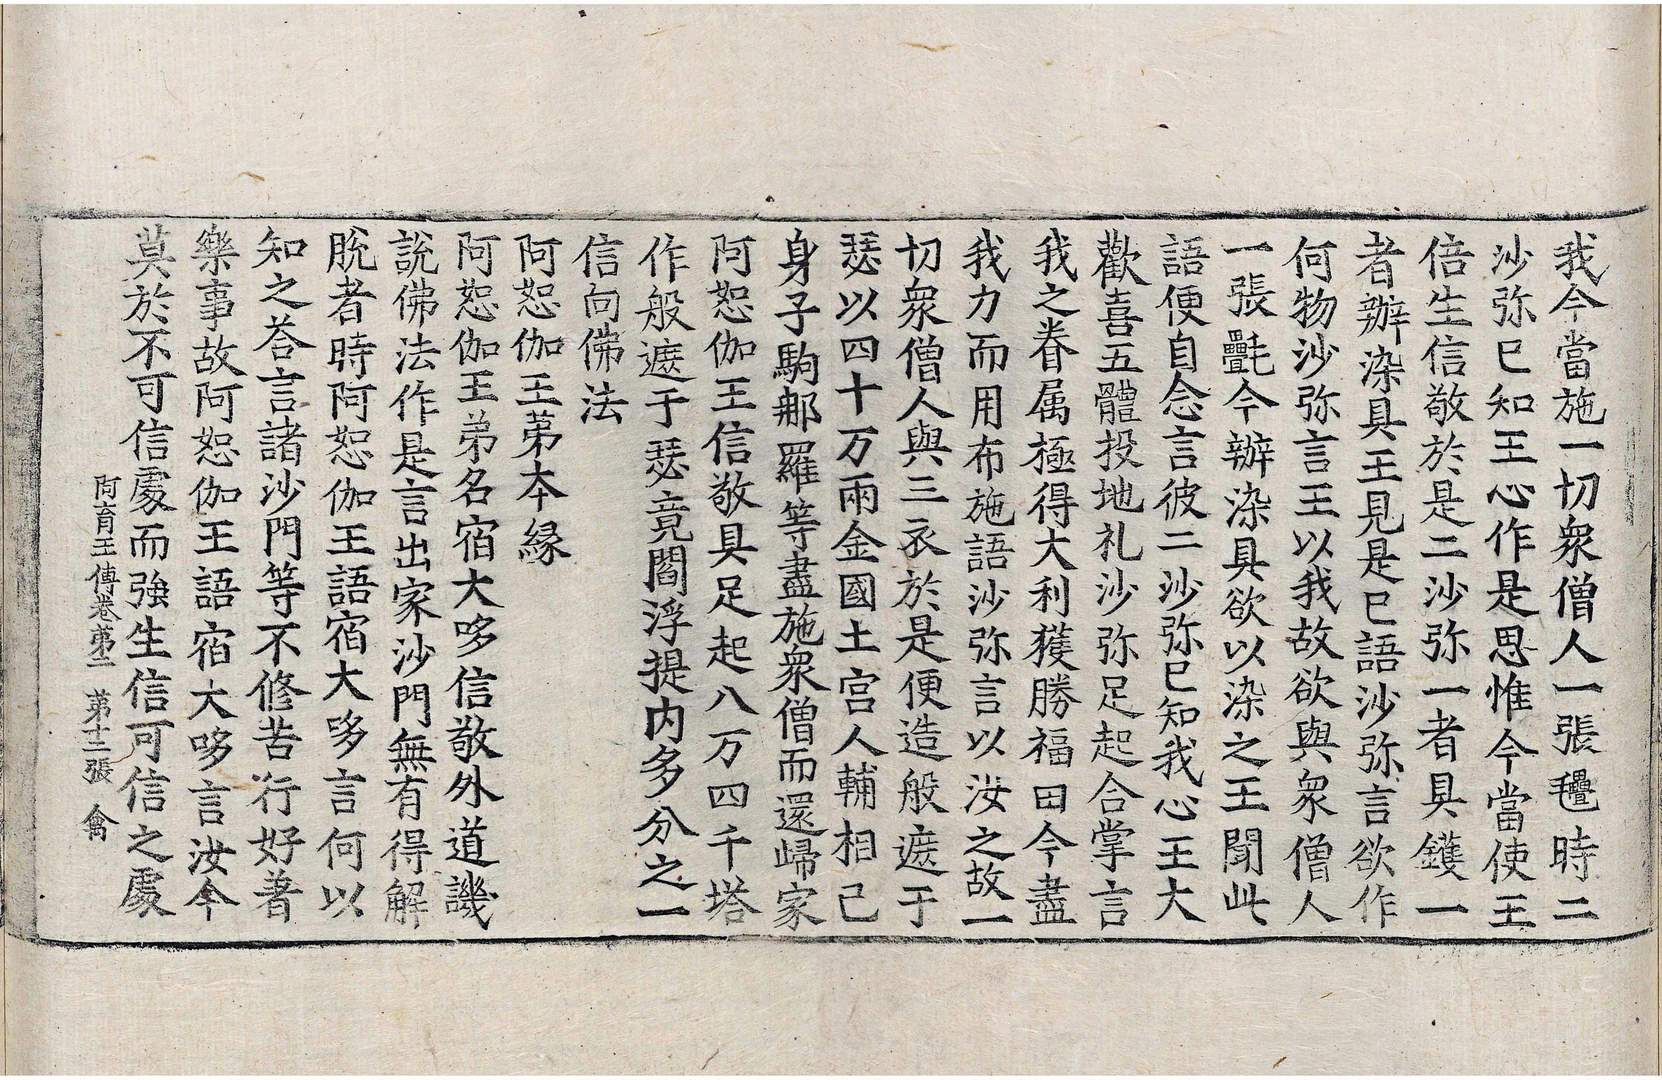 我今當施一切衆僧人一張㲲時二
沙弥已知王心作是思惟今當使王
倍生信敬於是二沙弥一者具鑊一
者辦染具王見是已語沙弥言欲作
何物沙弥言王以我故欲與衆僧人
一張㲲今辦染具欲以染之王聞此
語便自念言彼二沙弥已知我心王大
歡喜五體投地礼沙弥足起合掌言
我之眷属極得大利獲勝福田今盡
我力而用布施語沙弥言以汝之故一
切衆僧人與三衣於是便造般遮于
瑟以四十万兩金國土宫人輔相己
身子駒𨚗羅等盡施衆僧而還歸家
阿恕伽王信敬具足起八万四千塔
作般遮于瑟竟閻浮提内多分之一
信向佛法
阿恕伽王苐本緣
阿恕伽王弟名宿大哆信敬外道譏
說佛法作是言出家沙門無有得解
脫者時阿恕伽王語宿大哆言何以
知之荅言諸沙門等不修苦行好著
樂事故阿恕伽王語宿大哆言汝今
莫於不可信處而強生信可信之處
阿育王傳卷苐二 苐十二張 禽